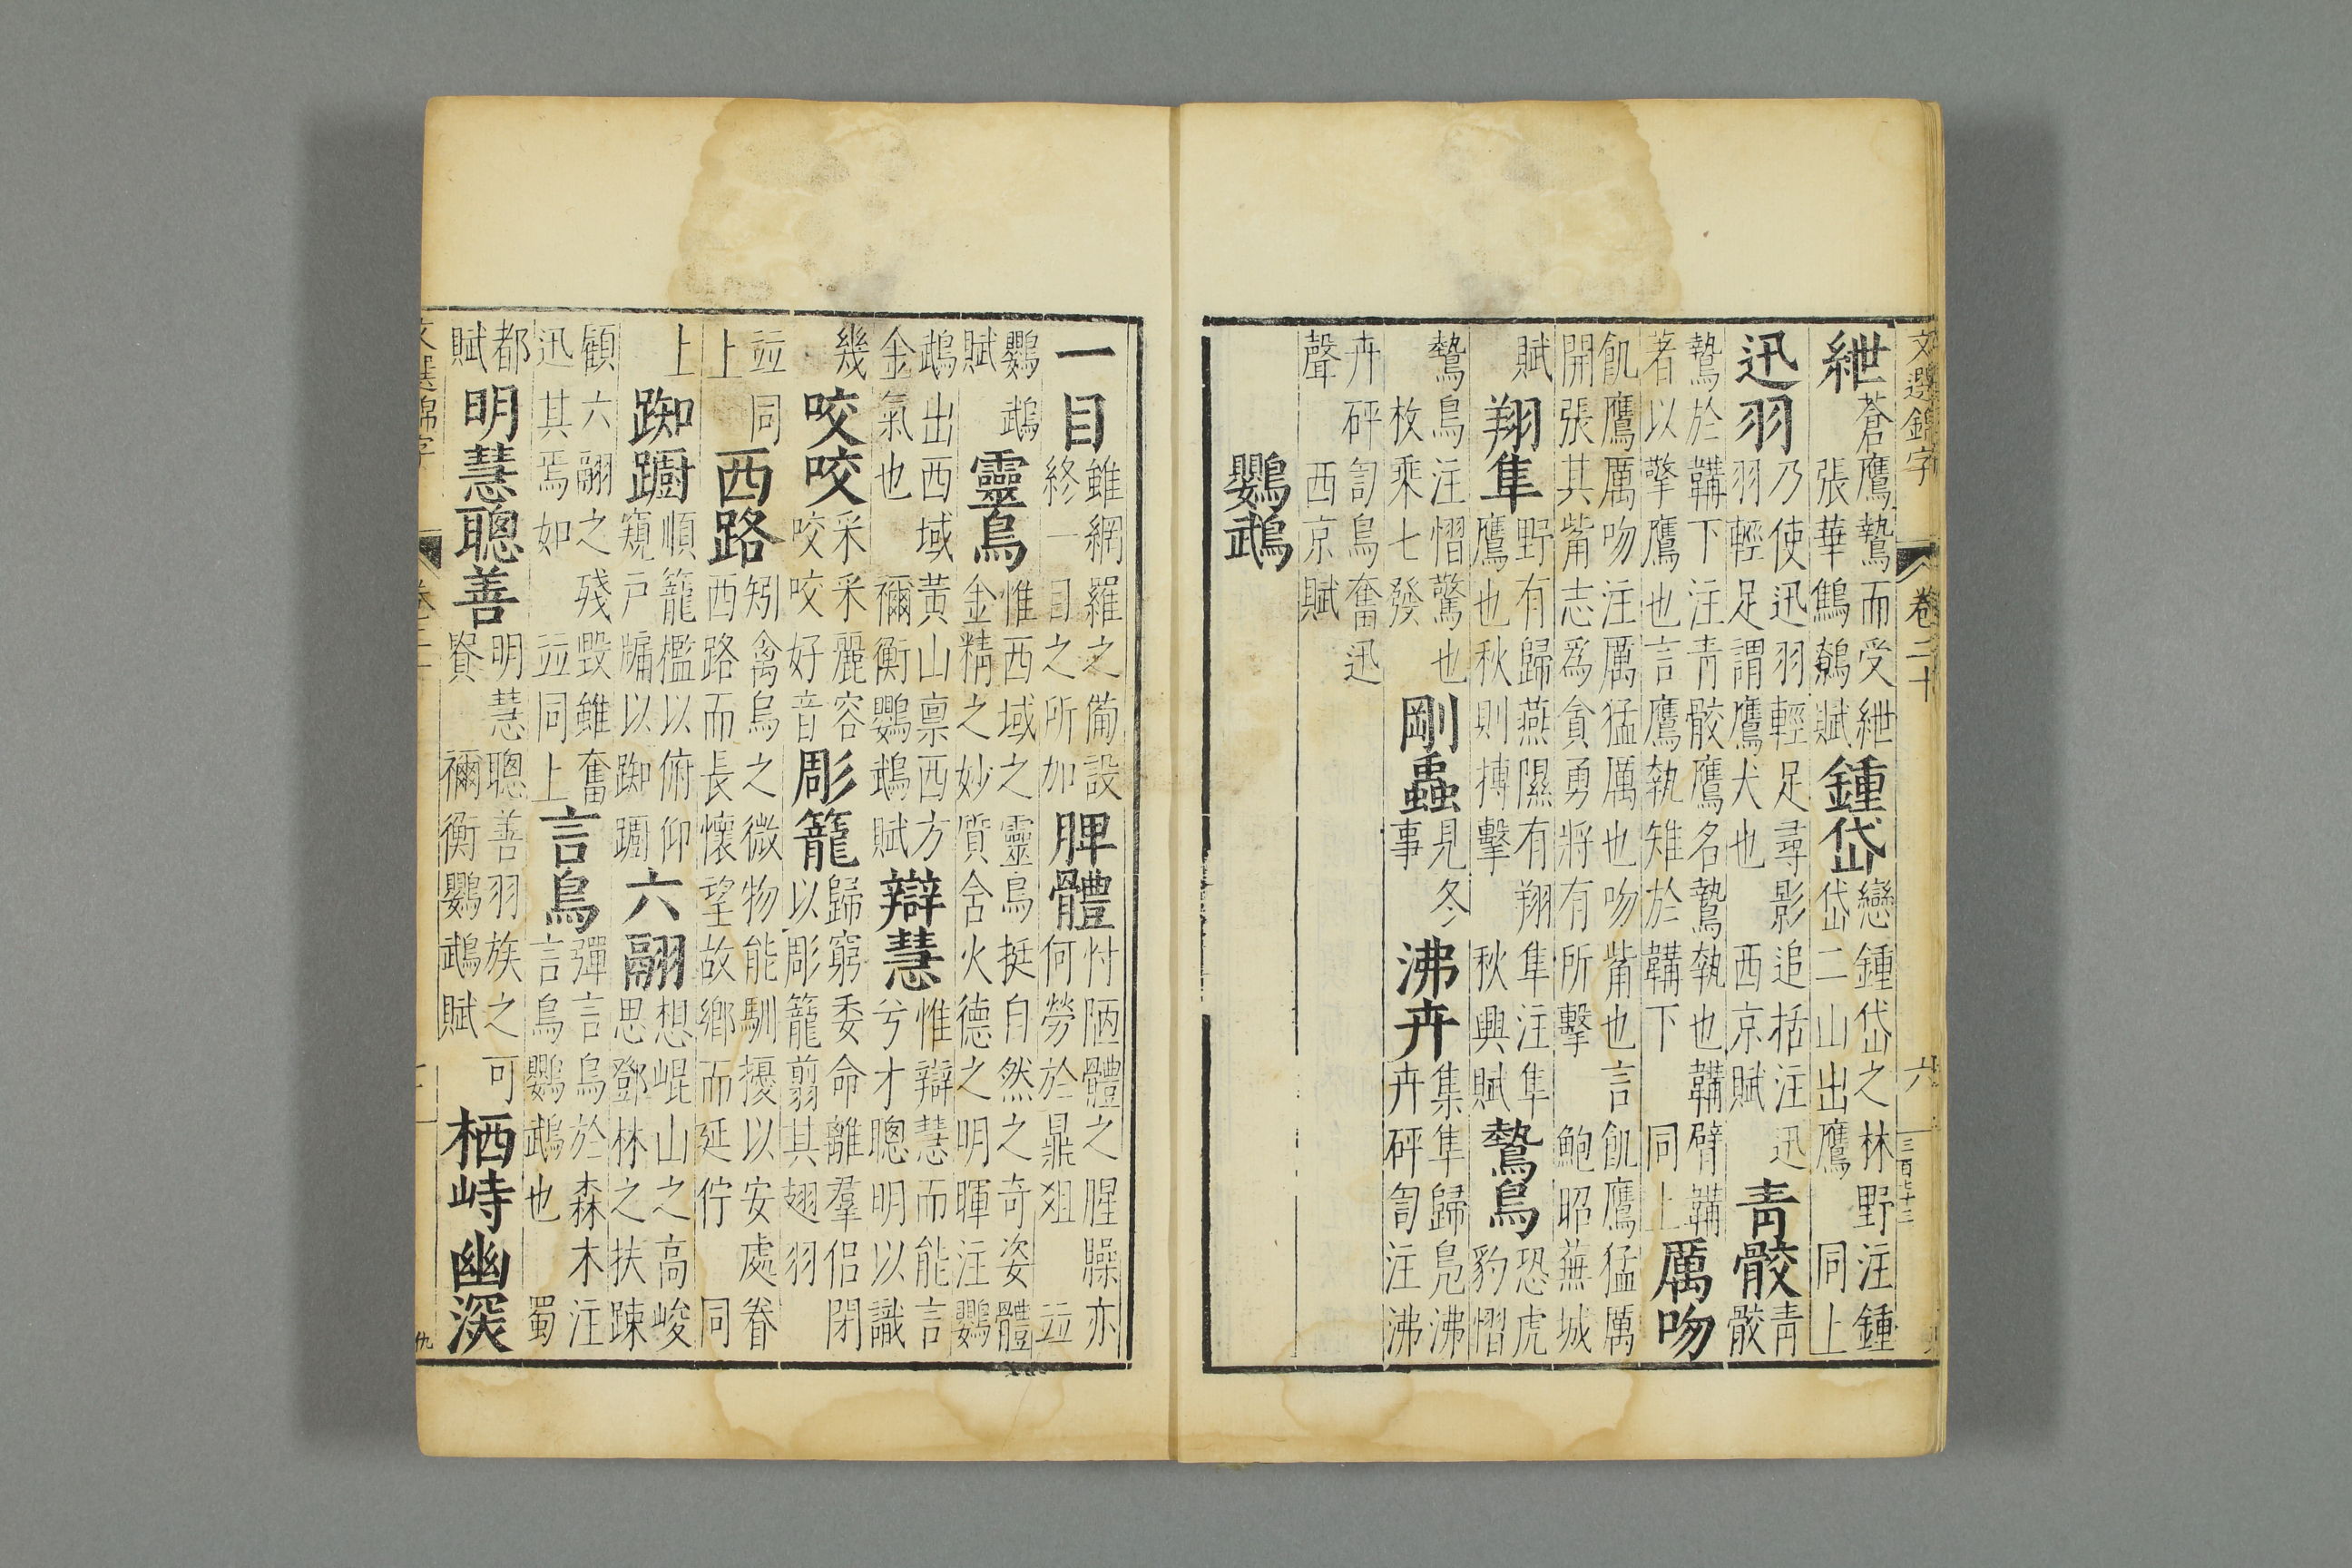 文選錦字 卷二十 六 三百七十三
紲
蒼鷹鷙而受紲
張華鷦鷯賦
鍾岱
戀鍾岱之林野注鍾
岱二山出鷹 同上
迅羽
乃使迅羽輕足尋影追括注迅
羽輕足謂鷹犬也 西京賦
青骹
青
骹
鷙於韝下注青骹鷹名鷙執也韝臂韝
者以擎鷹也言鷹執雉於韝下 同上
厲吻
飢鷹厲吻注厲猛厲也吻觜也言飢鷹猛厲
開張其觜志為貪勇將有所擊 鮑昭蕪城
賦
翔隼
野有歸燕隰有翔隼注隼
鷹也秋則摶擊 秋興賦
鷙鳥
恐虎
豹慴
鷙鳥注慴驚也
枚乘七發
剛蟲
見冬
事
沸卉
集隼歸凫沸
卉砰訇注沸
卉砰訇鳥奮迅
聲 西京賦
鸚鵡
一目
雖網羅之備設
終一目之所加
脾體
忖陋體之腥臊亦
何勞於鼎俎 並
鸚鵡
賦
靈鳥
惟西域之靈鳥挺自然之奇姿體
金精之妙質含火德之明暉注鸚
鵡出西域黃山禀西方
金氣也 禰衡鸚鵡賦
辯慧
惟辯慧而能言
兮才聰明以識
幾
咬咬
采采麗容
咬咬好音
彫籠
歸窮委命離羣侣閉
以彫籠翦其翅羽
並同
上
西路
矧禽鳥之微物能馴擾以安處眷
西路而長懷望故鄉而延佇 同
上
踟躕
順籠檻以俯仰
窺戶牖以踟躕
六翮
想崐山之高峻
思鄧林之扶踈
顧六翮之殘毀雖奮
迅其焉如 並同上
言鳥
彈言鳥於森木注
言鳥鸚鵡也 蜀
都
賦
明慧聰善
明慧聰善羽族之可
貴 禰衡鸚鵡賦
栖峙幽深